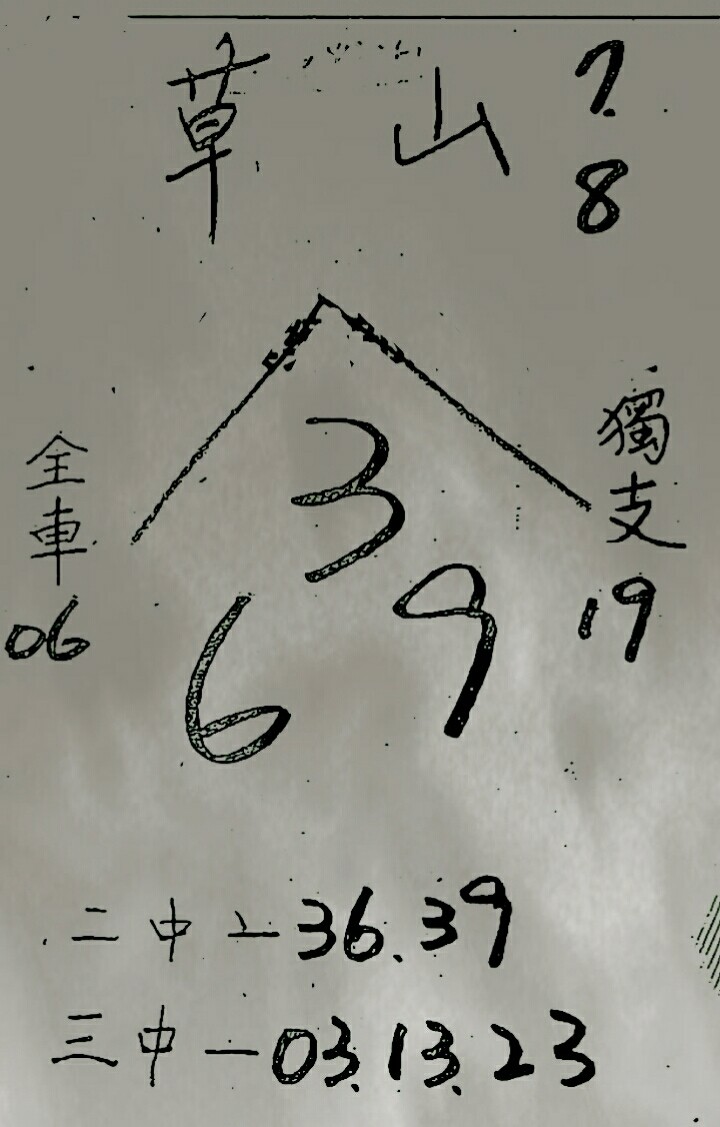 草山 7.
8
全車
06
獨支
19
3
6 9
二中一36.39
三中一03.13.23